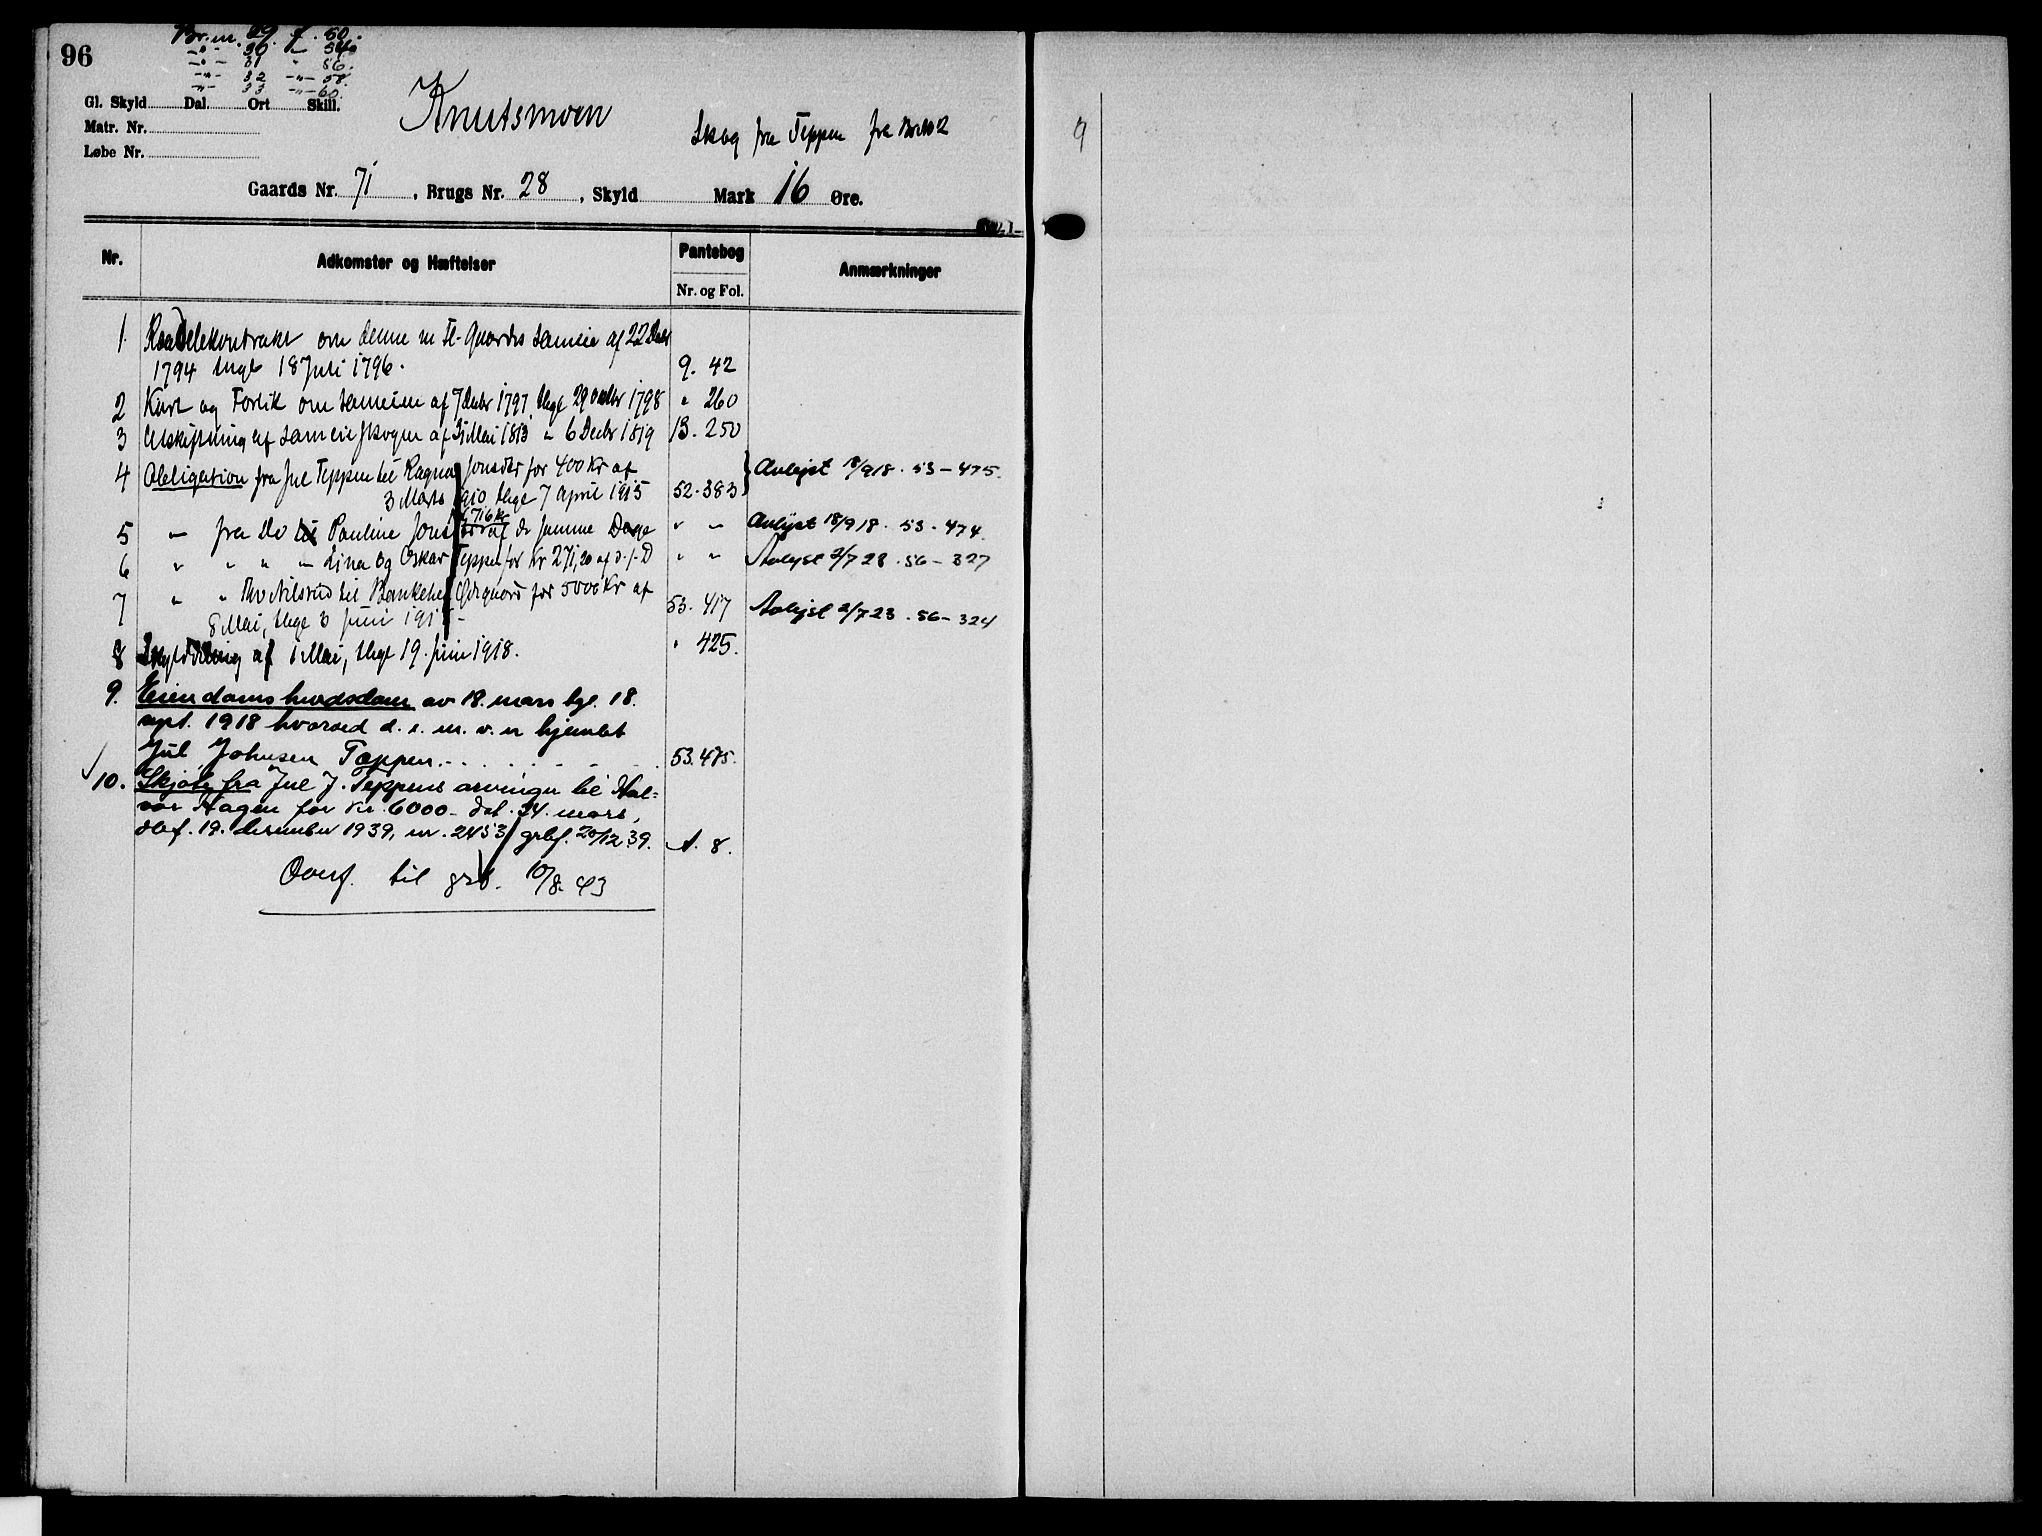 96
Br. nr. 29 f. 50.
-"- 30 "- 54
-"- 31 " 56.
-"- 32 -"- 58.
-"- 33 -"- 60.
Gl. Skyld Dal. Ort Skill.
Matr. Nr.
Løbe Nr.
Knutsmoen
Skog fra Teppen fra Br No 2
Gaards Nr. 71, Brugs Nr. 28, Skyld Mark 16 Øre.
Nr. Adkomster og Hæftelser Pantebog Anmærkninger
Nr. og Fol.
1. om denne m fl. Gaardes Sameie af 22 Decbr
1794 tingl 18 Juli 1796. 9. 42
2 Kart og Forlik om Sameien af 7 Decbr 1797, tingl 29 Octbr 1798 " 260
3 Utskiftning af Sameieskogen af 31 Mai 1813 " 6 Decbr 1819 13. 250
4 Obligation fra Jul Teppen til Ragna Jonsdtr for 400 Kr af
3 Marts 1910 tingl 7 April 1915 52. 383 Avlyst 18/9 18. 53 - 475.
716 Kr
5 - fra Do til Pauline Jonsdtr af do samme Dage " " Avlyst 18/9 18. 53. 474.
6 " " " " Lina og Oskar Teppen for Kr 271,20 af d./D " " Avlyst 2/7 23. 56 - 327
7 " " Thv Nilsrud til Bankchef Ødegaard for 5000 Kr af
8 Mai, tingl 3 Juni 1918 - 53. 417 Avlyst 2/7 23. 56 - 324
8 Skylddeling af 1 Mai, tingl 19. Juni 1918. " 425.
9. Eiendomshevdsdom av 18. mars tgl. 18.
sept. 1918 hvorved d. e. m. v. er hjemlet
Jul Johnsen Teppen. - 53. 475.
10. Skjøte fra Jul J. Teppens arvinger til Hal=
vor Hagen for kr. 6000 - dat. 24. mars,
dbf. 19. desember 1939, nr. 2453, grbf. 20/12 39. A. 8.
Overf. til grb. 10/8. 43
9